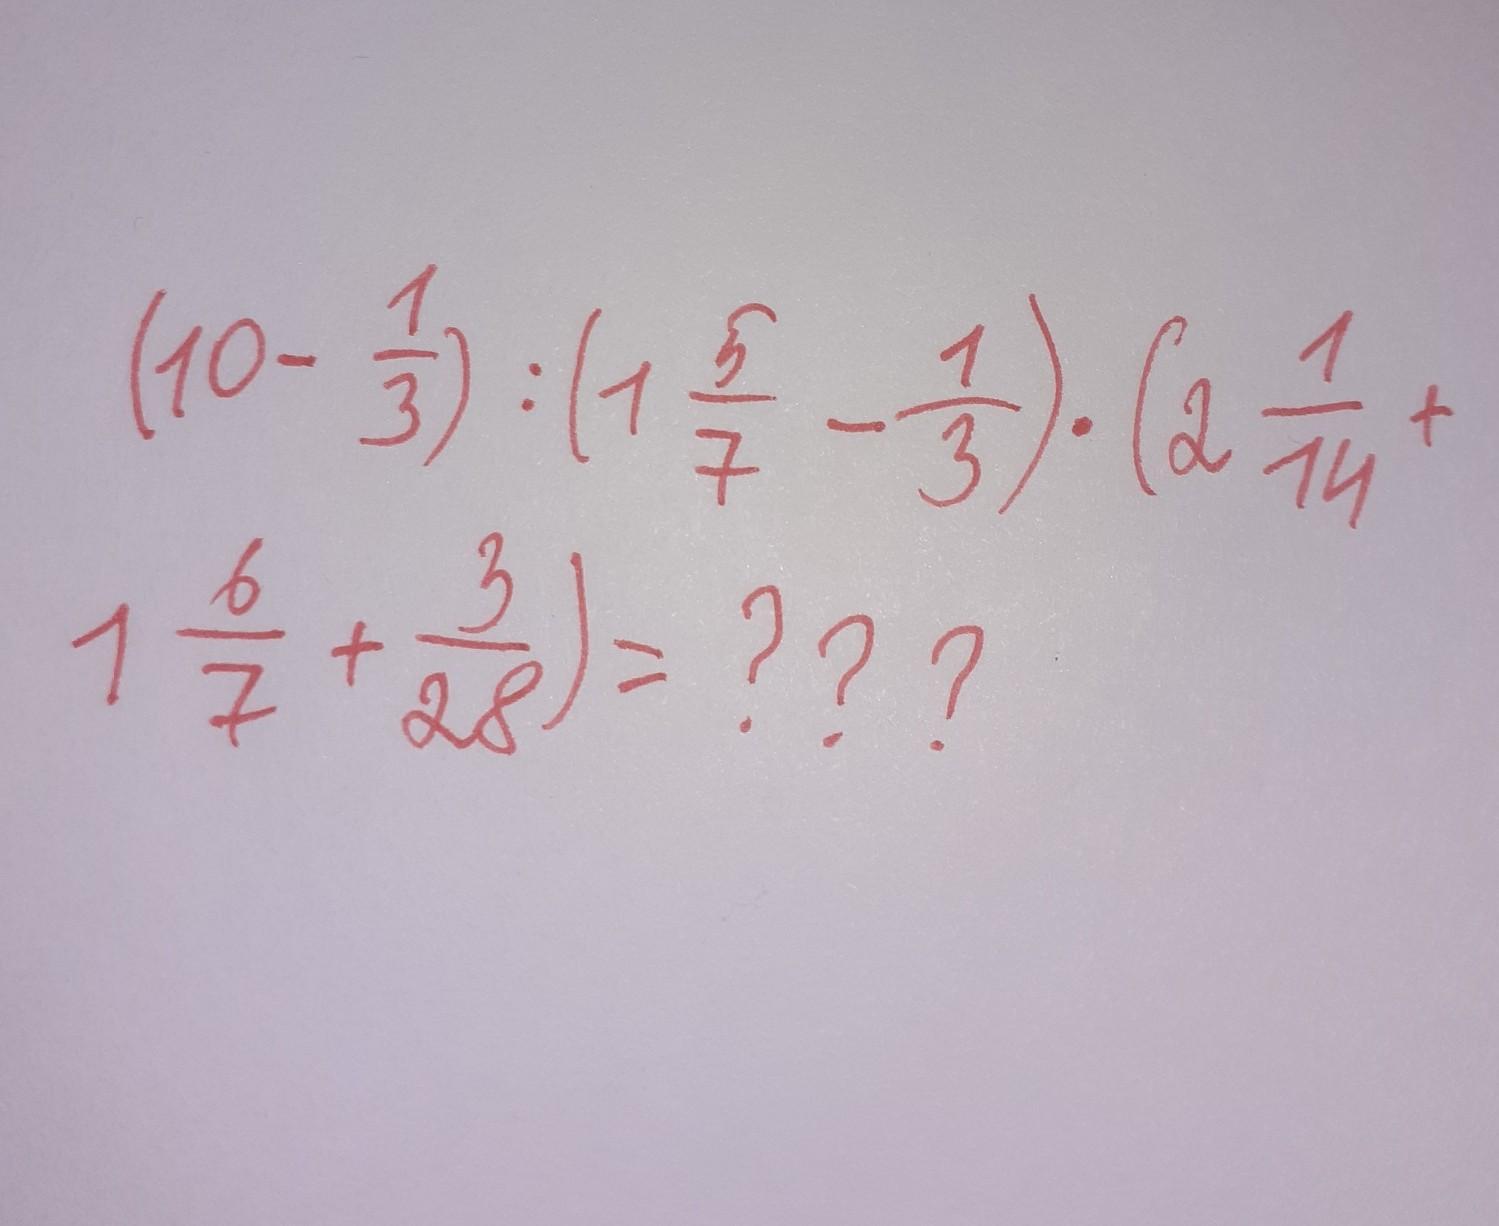 (10 - 1/3) : (1 5/7 - 1/3) · (2 1/14 +
1 6/7 + 3/28) = ? ? ?